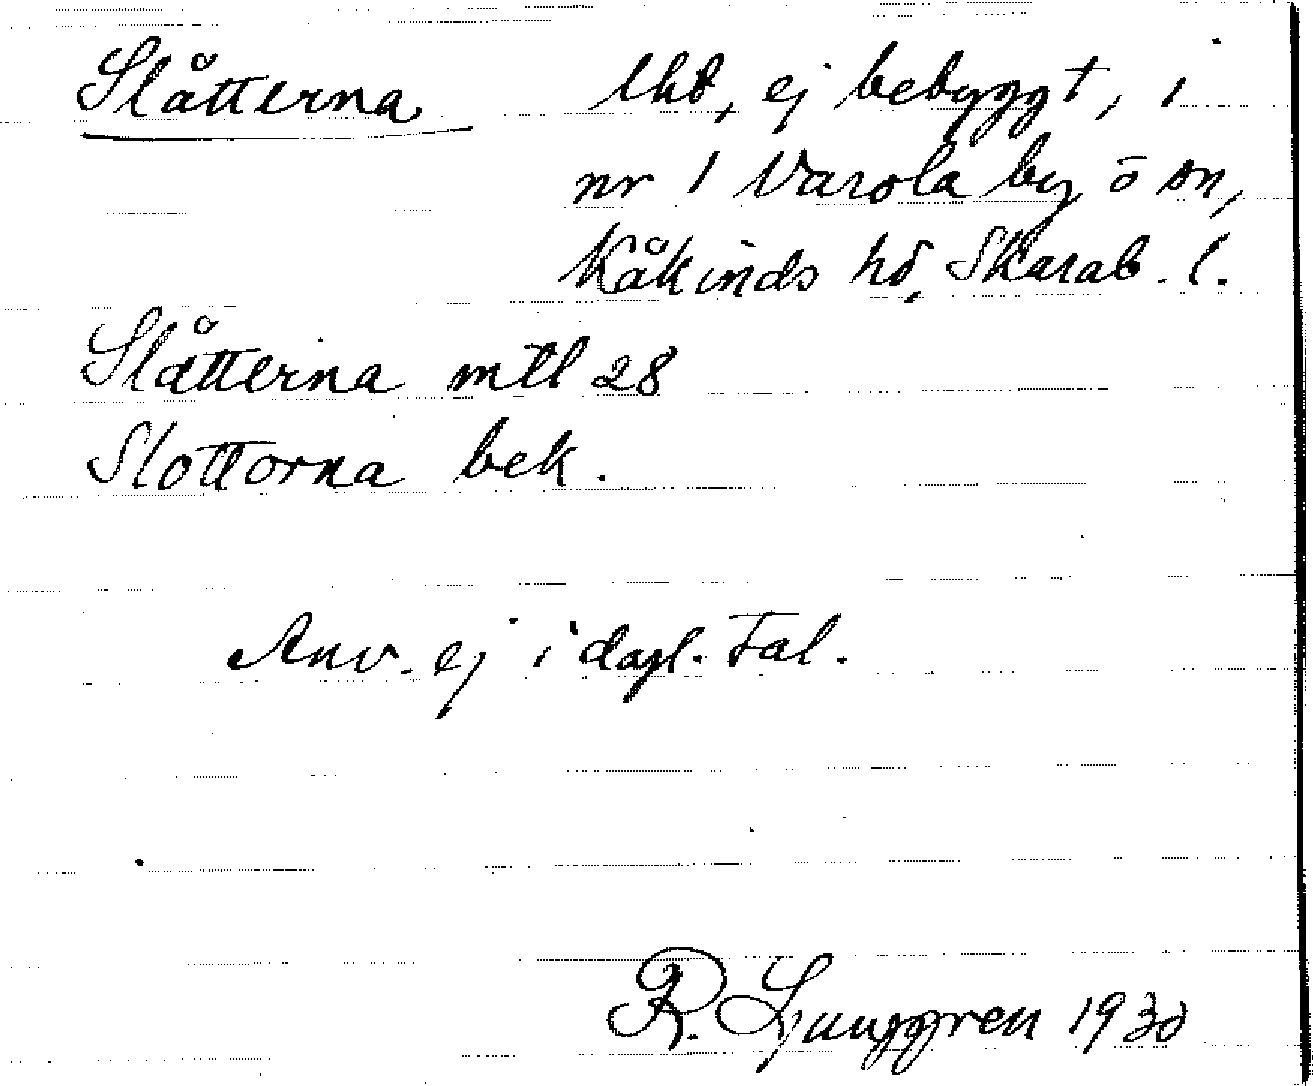 Slåtterna lhd, ej bebyggt, i
nr 1 Varola by o sn,
Kåkinds hd, Skarab. l.
Slåtterna mtl 28
Slottorna bek.
Anv. ej i dagl. tal.
R. Ljunggren 1930